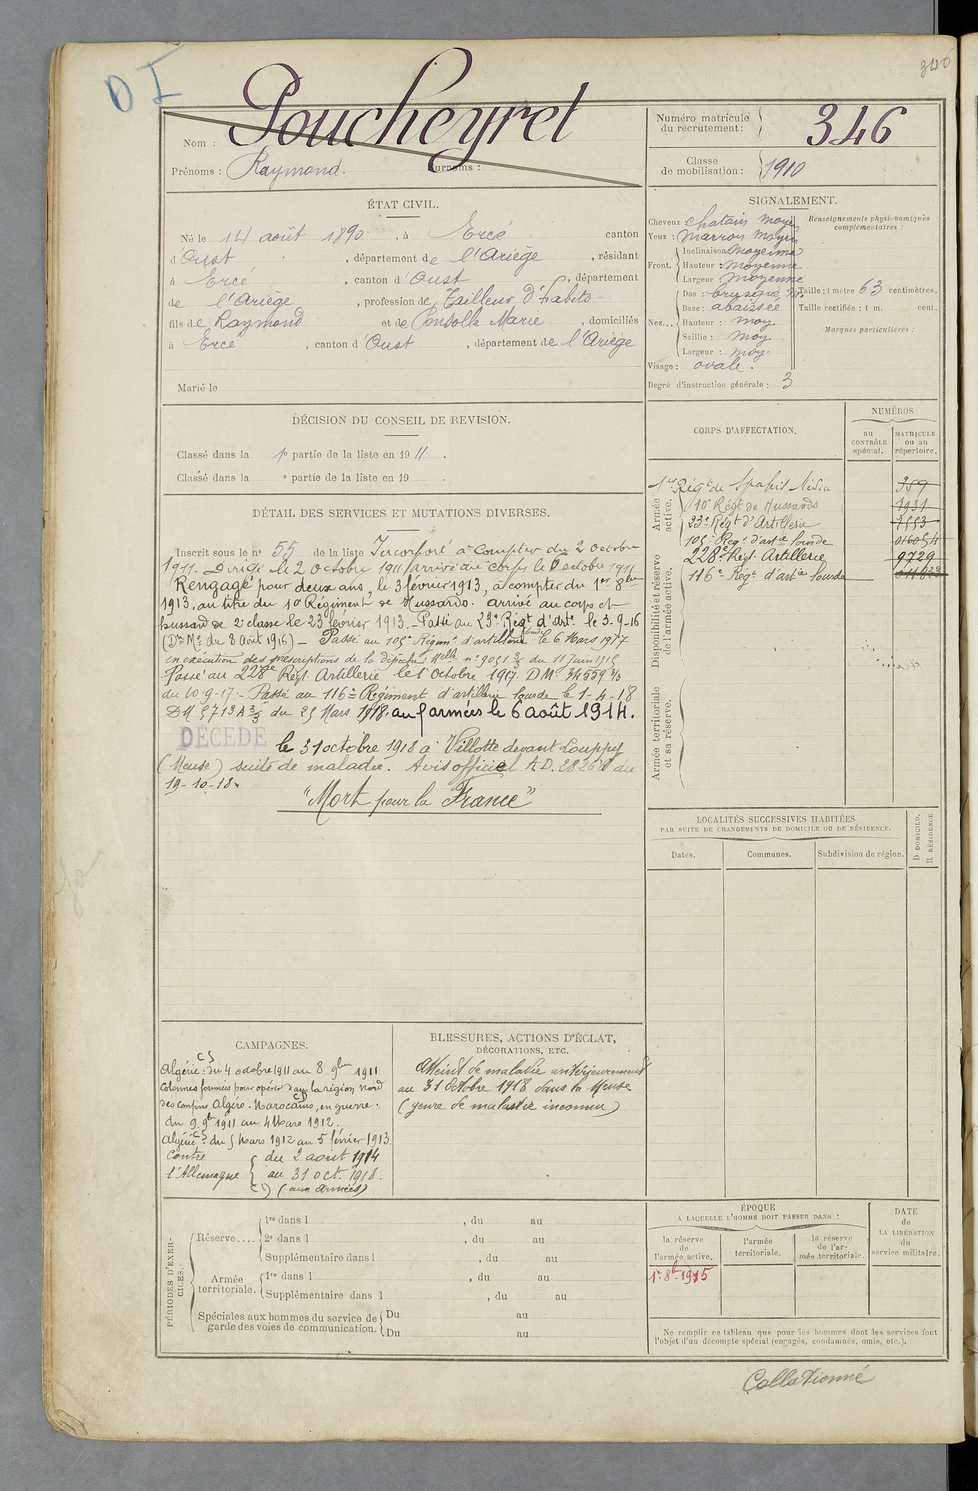 346
D I
Poucheyret
Nom :
Prénoms : Raymond. Surnoms :
Numéro matricule du recrutement : 346
Classe de mobilisation : 1910
ÉTAT CIVIL.
Né le 14 août 1890, à Ercé canton
d'Oust, département de l'Ariège, résidant
à Ercé, canton d'Oust, département
de l'Ariège, profession de Tailleur d'habits
fils de Raymond et de Marie, domiciliés
à Ercé, canton d'Oust, département de l'Ariège
Marié le
SIGNALEMENT.
Cheveux chatain moyen
Yeux : marron moyen
Front. Inclinaison moyenne
Hauteur : moyenne
Largeur moyenne
Nez... Dos : busqué
Base : abaissée
Hauteur : moy
Saillie : moy.
Largeur : moy.
Visage : ovale.
Degré d'instruction générale : 3
Renseignements physionomiques complémentaires :
Taille : 1 mètre 63 centimètres.
Taille rectifiée : 1 m. cent.
Marques particulières :
DÉCISION DU CONSEIL DE REVISION.
Classé dans la 1e partie de la liste en 1911.
Classé dans la e partie de la liste en 19 .
DÉTAIL DES SERVICES ET MUTATIONS DIVERSES.
Inscrit sous le n° 55 de la liste Incorporé à compter du 2 octobre
1911. Dirigé le 2 octobre 1911 arrivé au corps le octobre 1911
Rengagé pour deux ans, le 3 février 1913, à compter du 1er 8bre
1913, au titre du 10e Régiment de Hussards. arrivé au corps et
hussard de 2e classe le 23 février 1913. Passé au 23e Régt d'Artie le 3-9-16
(Don Mle du 8 Août 1916) - Passé au 105e Régimt d'artillerie lourde le 6 Mars 1917
en exécution des prescriptions de la dépêche Mlle n° 9051 3/3 du 11 Juin 1915
Passé au 228e Régt Artillerie le 1 Octobre 1917 DMle 34559 3/3
du 20-9-17 - Passé au 116e Régiment d'artillerie lourde le 1-4-18
DM 5713 A 3/3 du 25 Mars 1918. aux armées le 6 août 1914.
DÉCÉDÉ le 31 octobre 1918 à Villotte devant Louppy
(Meuse) suite de maladie. Avis officiel A.D. du
19-10-18.
"Mort pour la France"
CORPS D'AFFECTATION.
NUMÉROS
au CONTRÔLE spécial.
MATRICULE ou au répertoire.
Armée active.
1er Régt de Spahis 357
10e Régt de Hussards 1931
23e Régt d'Artillerie 1553
Disponibilité et réserve de l'armée active.
105e Régt d'artie lourde
228e Régt Artillerie 9729
116e Régt d'artie lourde
Armée territoriale et sa réserve.
LOCALITÉS SUCCESSIVES HABITÉES
PAR SUITE DE CHANGEMENTS DE DOMICILE OU DE RÉSIDENCE.
Dates.
Communes.
Subdivision de région.
D DOMICILE.
R RÉSIDENCE
CAMPAGNES.
CS
Algérie : du 4 octobre 1911 au 8 9bre 1911
Colonnes formées pour opérer dans la région Nord
des confins Algéro-Marocains, en guerre :
du 9 9bre 1911 au 4 Mars 1912.
Algérie CS : du 5 Mars 1912 au 5 février 1913.
Contre l'Allemagne du 2 août 1914
au 31 oct. 1918.
(aux armées)
BLESSURES, ACTIONS D'ÉCLAT,
DÉCORATIONS, ETC.
Atteint de maladie antérieurement
au 31 Octobre 1918 dans la Meuse
(genre de maladie inconnu)
PÉRIODES D'EXERCICES.
Réserve.... 1re dans l , du au
2e dans l , du au
Supplémentaire dans l , du au
Armée territoriale. 1re dans l , du au
Supplémentaire dans l , du au
Spéciales aux hommes du service de garde des voies de communication. Du au
Du au
ÉPOQUE
A LAQUELLE L'HOMME DOIT PASSER DANS :
la réserve de l'armée active.
l'armée territoriale.
la réserve de l'armée territoriale.
DATE de LA LIBÉRATION du service militaire.
1er 8bre 1915
Ne remplir ce tableau que pour les hommes dont les services font
l'objet d'un décompte spécial (engagés, condamnés, omis, etc.).
Collationné